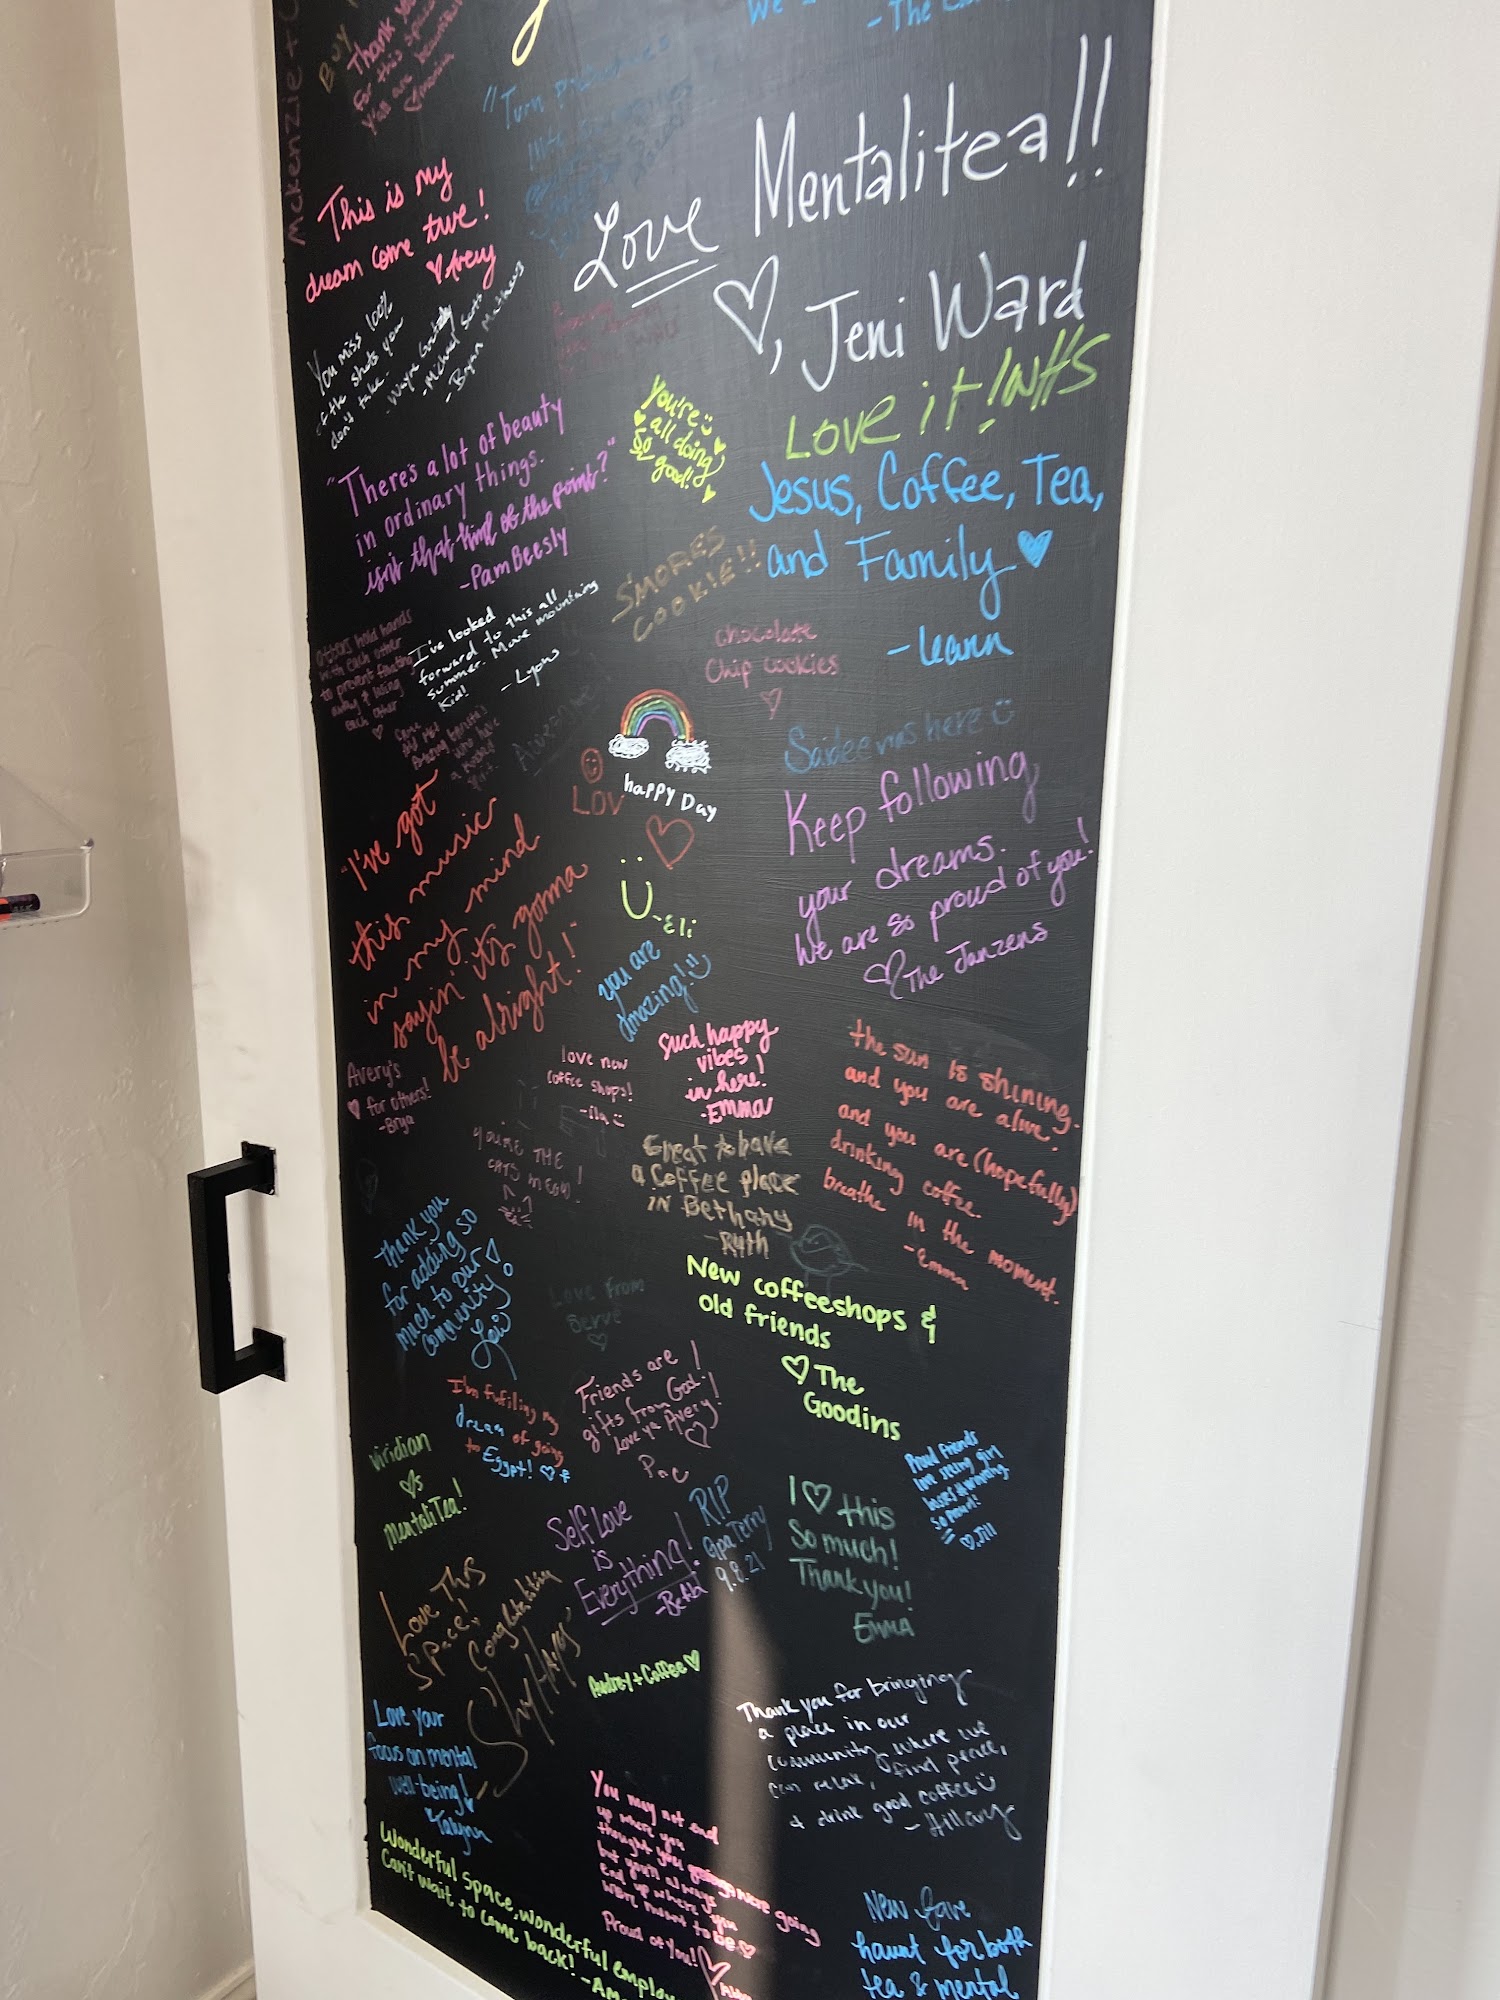 Thank you
for this space
You are beautiful
We
- The
"Turn
Mckenzie +
Love Mentalitea!!
, Jeni Ward
This is my
dream come true!
Avery
You miss 100%
of the shots you
don't take.
- Wayne Gretzky
- Michael Scott
- Bryan Mathews
Love it! NHS
You're
all doing
so
good!
"There's a lot of beauty
in ordinary things.
isn't that kind of the point?"
- Pam Beesly
Jesus, Coffee, Tea,
and Family
- Leann
S'MORES
COOKIE!!
chocolate
Chip cookies
otters hold hands
with each other
to prevent floating
away & losing
each other
I've looked
forward to this all
summer. Move mountains
Kid!
- Lyons
Saidee was here
LOV
happy Day
Keep following
your dreams.
We are so proud of you!
The Janzens
"I've got
this music
in my mind
sayin' it's gonna
be alright!"
- Eli
you are
amazing!
Avery's
for others!
- Brya
love new
coffee shops!
Such happy
vibes
in here!
- EMMA
the sun is shining.
and you are alive.
and you are (hopefully)
drinking coffee.
breathe in the moment.
- Emma
YOU'RE THE
CATS MEOW!
Great to have
a Coffee place
in Bethany
- Ruth
Thank you
for adding so
much to our
community!
Love from
Serve
New coffeeshops &
old friends
The
Goodins
I'm fufiling my
dream of going
to Egypt!
Friends are
gifts from God!
Love ya Avery!
viridian
s
MentaliTea!
Proud friends
love seeing girl
bosses # winning
So Proud!
Jill
Self Love
is
Everything!
- Beth
RIP
Gpa Terry
9.8.21
I this
So much!
Thank you!
Emma
Love This
Space!
Congratulations
Audrey + Coffee
Love your
focus on mental
well-being!
Thank you for bringing
a place in our
community where we
can relax, find peace,
& drink good coffee
- Hillary
You may not end
up where you
thought you were going
but you'll always
end up where you
were meant to be
Proud of You!
Wonderful space, wonderful employ
Can't wait to come back! - Am
New fave
haunt for both
tea & mental